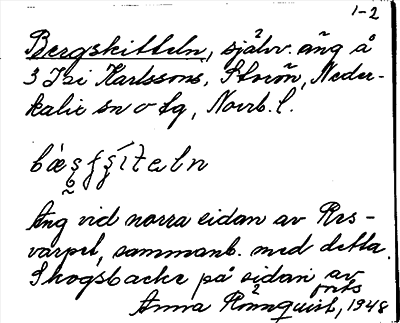 1-2
Bergskitteln, självv. äng å
3 Isi Karlssons, Storön, Neder-
kalix sn o tg, Norrb. l.
Äng vid norra sidan av Rvs-
varpet, sammanb. med detta.
Skogsbacke på sidan av
forts
Anna Rönnquist, 1948
2